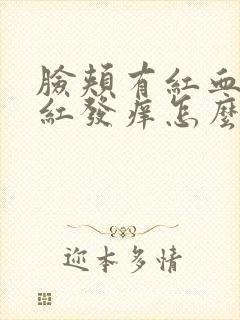 臉頰有紅血
紅發痒怎麼
迩本多情